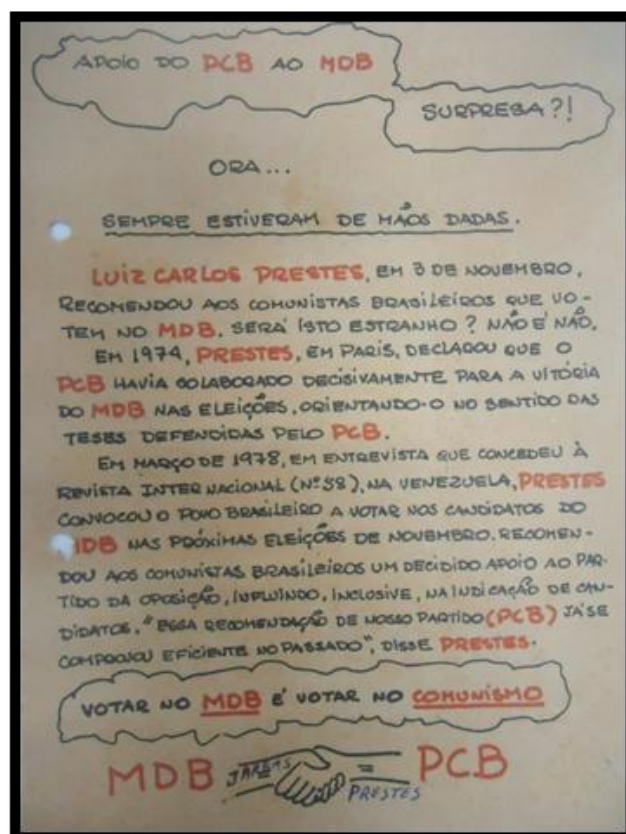 APOIO DO PCB AO MDB
SURPRESA?!
ORA...
SEMPRE ESTIVERAM DE MÃOS DADAS.
LUIZ CARLOS PRESTES, EM 3 DE NOVEMBRO,
RECOMENDOU AOS COMUNISTAS BRASILEIROS QUE VO-
TEM NO MDB. SERÁ ISTO ESTRANHO? NÃO É NÃO.
EM 1974, PRESTES, EM PARIS, DECLAROU QUE O
PCB HAVIA COLABORADO DECISIVAMENTE PARA A VITÓRIA
DO MDB NAS ELEIÇÕES, ORIENTANDO-O NO SENTIDO DAS
TESES DEFENDIDAS PELO PCB.
EM MARÇO DE 1978, EM ENTREVISTA QUE CONCEDEU À
REVISTA INTERNACIONAL (Nº 58), NA VENEZUELA, PRESTES
CONVOCOU O POVO BRASILEIRO A VOTAR NOS CANDIDATOS DO
MDB NAS PRÓXIMAS ELEIÇÕES DE NOVEMBRO. RECOMEN-
DOU AOS COMUNISTAS BRASILEIROS UM DECIDIDO APOIO AO PAR-
TIDO DA OPOSIÇÃO, INFLUINDO, INCLUSIVE, NA INDICAÇÃO DE CAN-
DIDATOS. "ESSA RECOMENDAÇÃO DE NOSSO PARTIDO (PCB) JÁ SE
COMPROVOU EFICIENTE NO PASSADO", DISSE PRESTES.
VOTAR NO MDB É VOTAR NO COMUNISMO
MDB = PCB
PRESTES